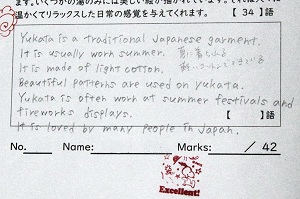 温かくてリラックスした日常の感覚を与えてくれます。 【 34 】語
Yukata is a traditional Japanese garment.
It is usually worn summer.
It is made of light cotton.
Beautiful patterns are used on yukata.
Yukata is often worn at summer festivals and
fireworks displays.
【 】語
It is loved by many people in Japan.
No. Name: Marks: / 42
Excellent!